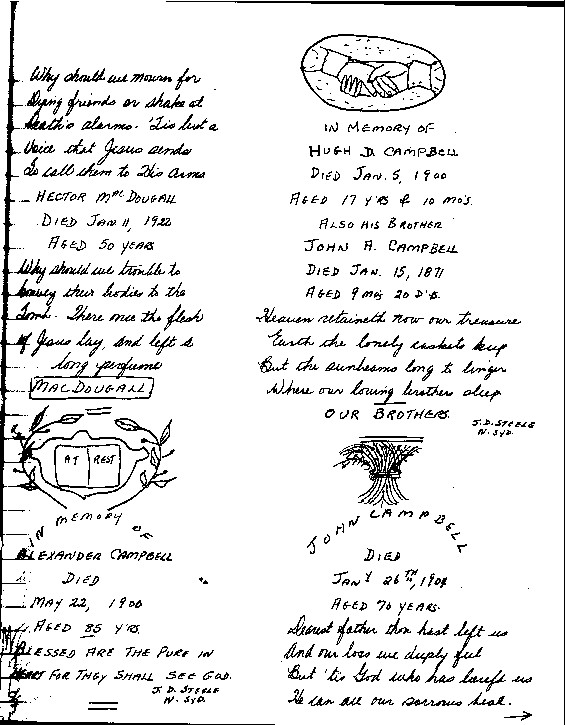 Why should we mourn for
Dying friends or shake at
Death's alarms. 'Tis but a
Voice that Jesus sends
To call them to His Arms
HECTOR MacDOUGALL
DIED JAN 11, 1922
AGED 50 YEARS
Why should we tremble to
convey their bodies to the
Tomb. There once the flesh
of Jesus lay, and left a
long perfume
MACDOUGALL
AT REST
IN MEMORY OF
ALEXANDER CAMPBELL
DIED
MAY 22, 1900
AGED 85 Y'RS.
BLESSED ARE THE PURE IN
HEART FOR THEY SHALL SEE GOD.
J. D. STEELE
N. SYD.
IN MEMORY OF
HUGH D. CAMPBELL
DIED JAN. 5, 1900
AGED 17 Y'RS & 10 MO'S.
ALSO HIS BROTHER
JOHN A. CAMPBELL
DIED JAN. 15, 1871
AGED 9 MO'S 20 D'S.
Heaven retaineth now our treasure
Earth the lonely caskets keep
But the sunbeams long to linger
Where our loving brothers sleep
OUR BROTHERS.
J. D. STEELE
N. SYD.
JOHN CAMPBELL
DIED
JANY 26TH,
AGED 70 YEARS.
Dearest father thou hast left us
And our loss we deeply feel
But 'tis God who has bereft us
He can all our sorrows heal.